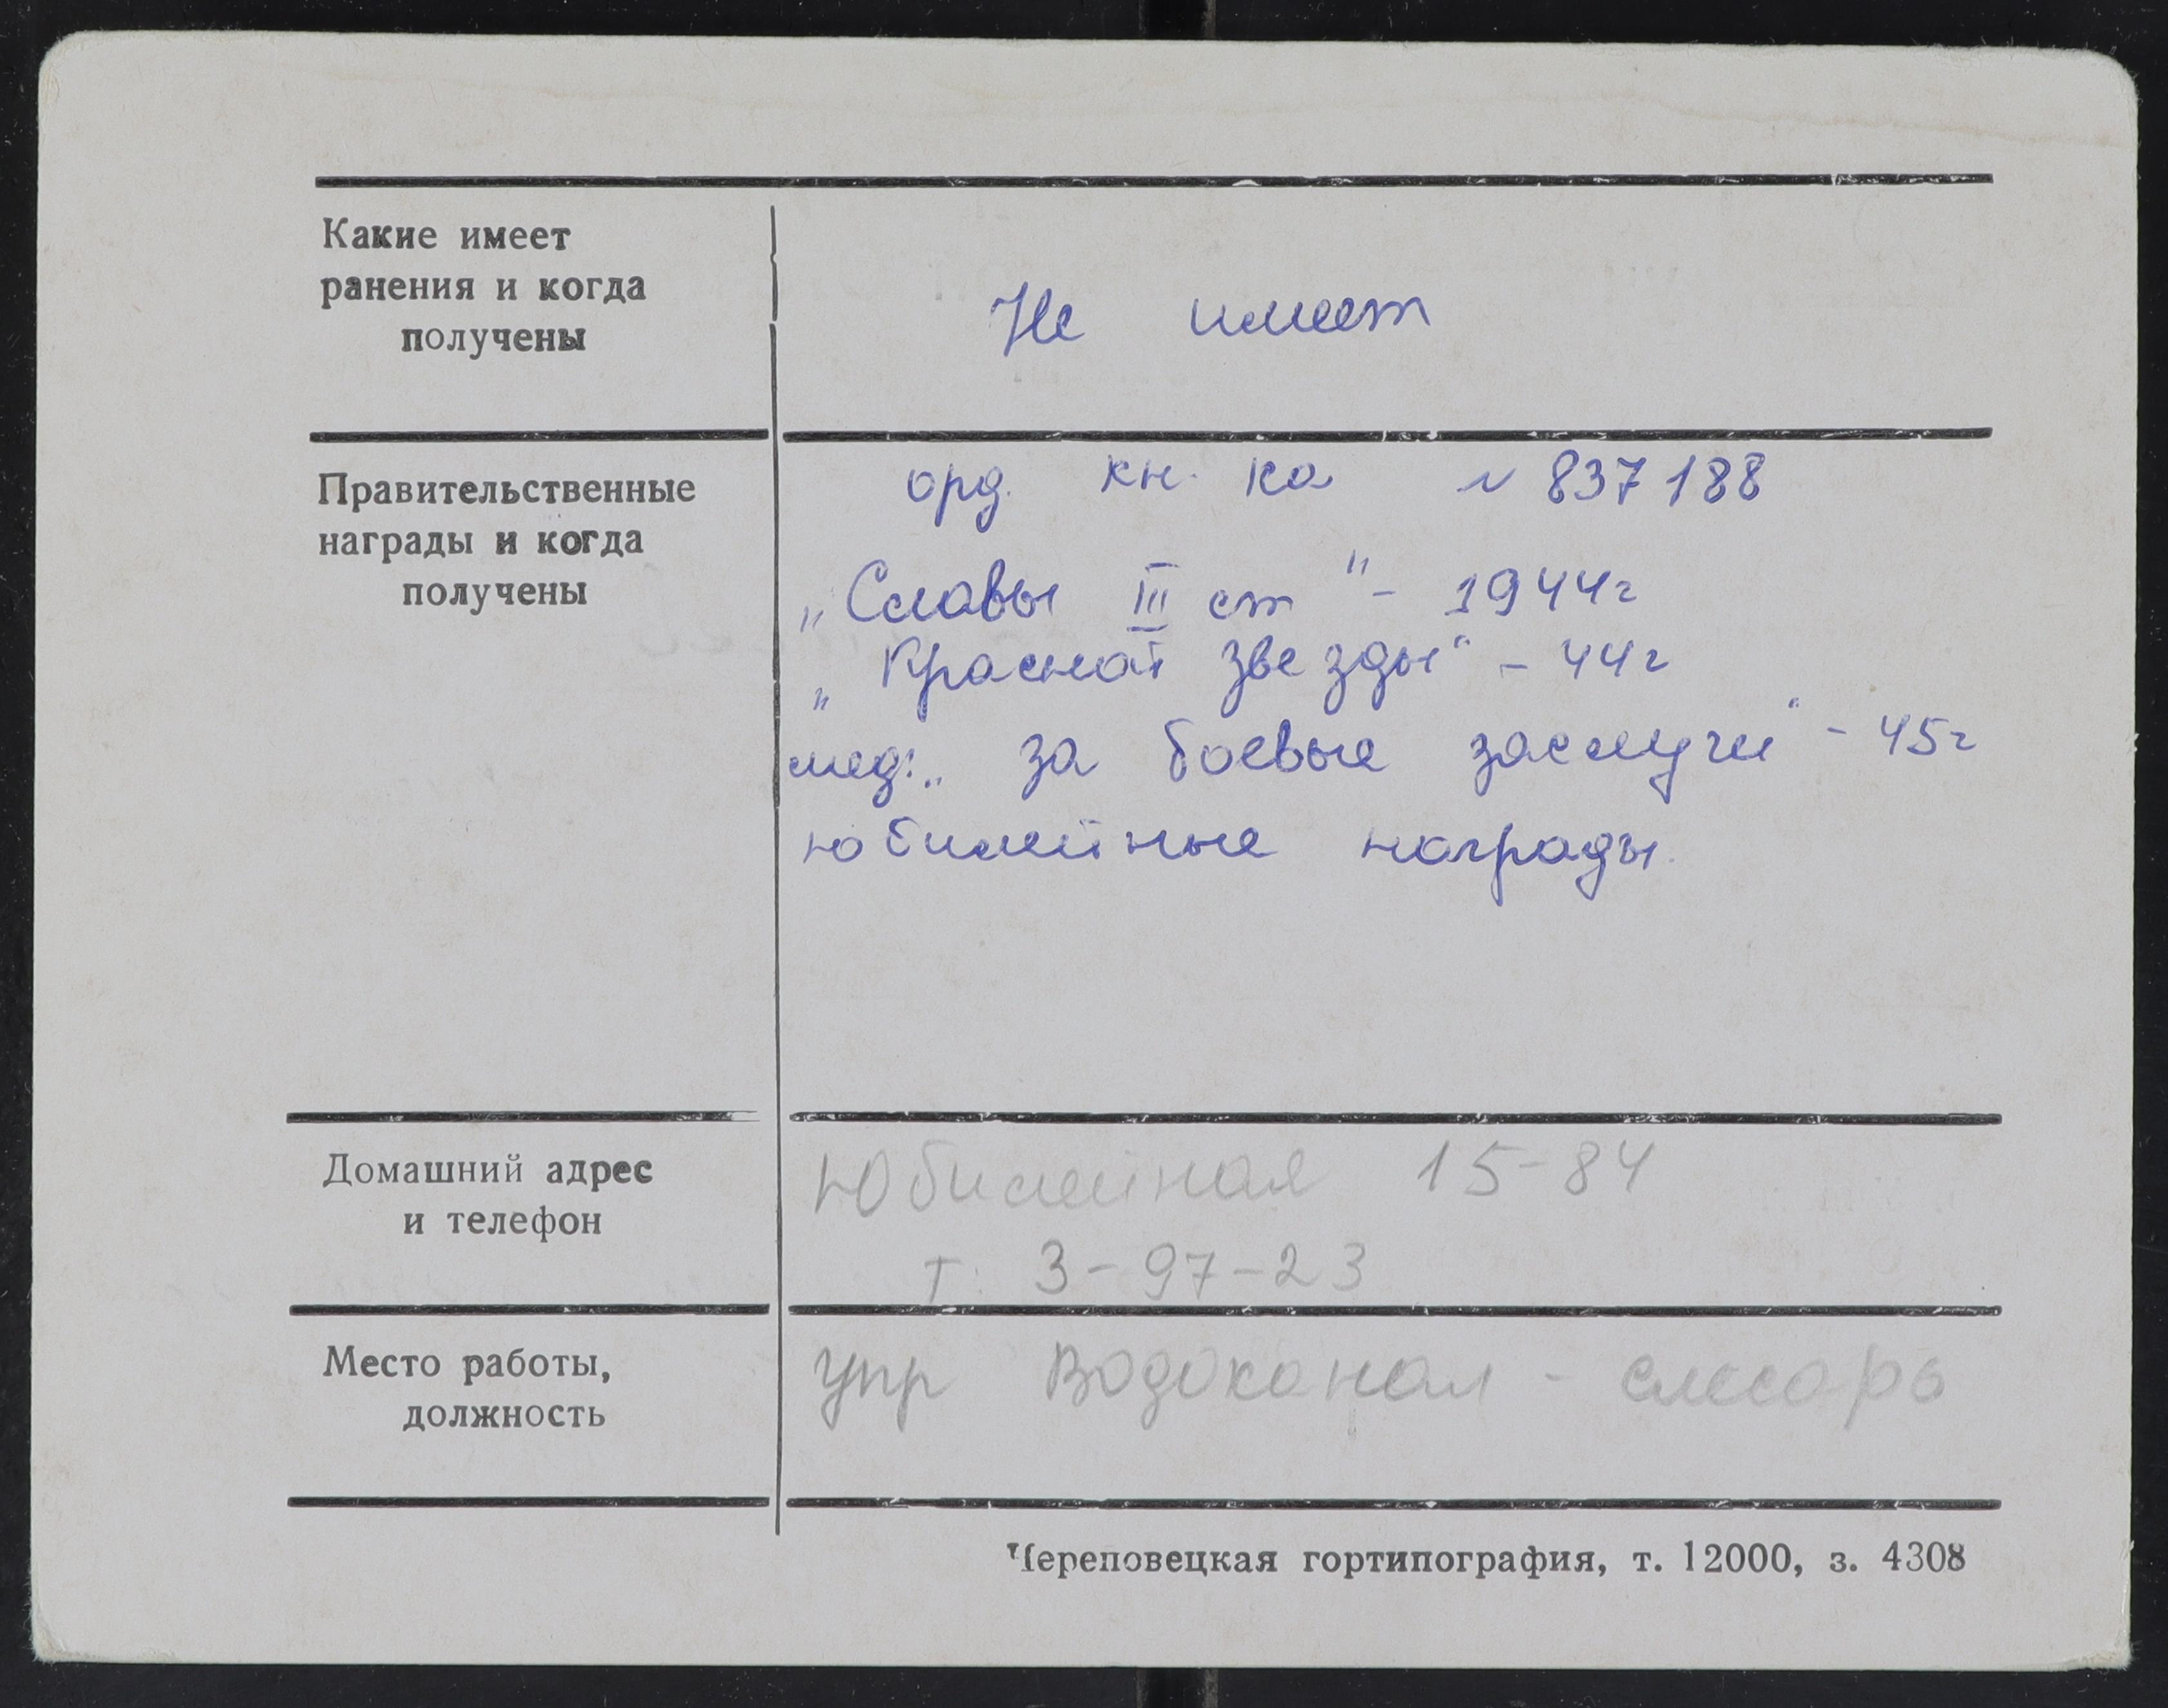 Какие имеет
ранения и когда
получены
Не имеет
Правительственные
награды и когда
получены
орд. кн. ка № 837188
„Славы III ст" - 1944г
„Красной звезды" - 44г
мед: „за боевые заслуги" - 45г
юбилейные награды.
Домашний адрес
и телефон
Юбилейная 15-84
т. 3-97-23
Место работы,
должность
упр Водоканал - слесарь
Череповецкая гортипография, т. 12000, з. 4308